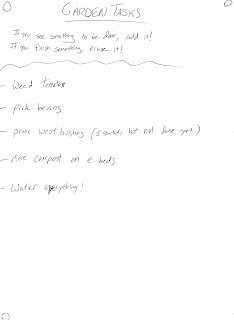 GARDEN TASKS
If you see something to be done, add it!
If you finish something, erase it!
- Weed tomatoes
- pick beans
- prune west bushes (I started, but not done yet)
- More compost on e. beds
- Water everything!